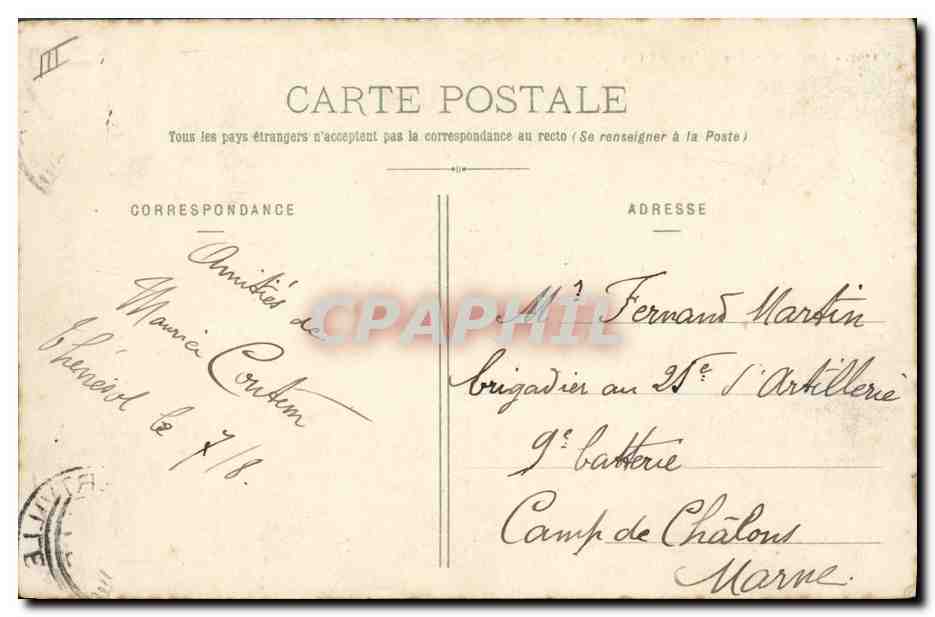 III
CARTE POSTALE
Tous les pays étrangers n'acceptent pas la correspondance au recto (Se renseigner à la Poste)
CORRESPONDANCE
Amitiés de
Maurice
Thénésol le 7/8.
ADRESSE
Mr Fernand Martin
brigadier au 25e d'Artillerie
9e batterie
Camp de Châlons
Marne.
CPAPHIL